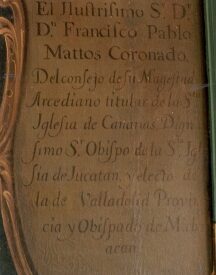 El Ilustrisimo Sr. Dr.
Dn. Francisco Pablo
Mattos Coronado,
Del consejo de su Magestad
Arcediano titular de la Sta.
Iglesia de Canarias, Digni
simo Sr. Obispo de la Sta. Igle
sia de Jucatan, y electo de
la de Valladolid Provin
cia y Obispado de Mich
oacan.